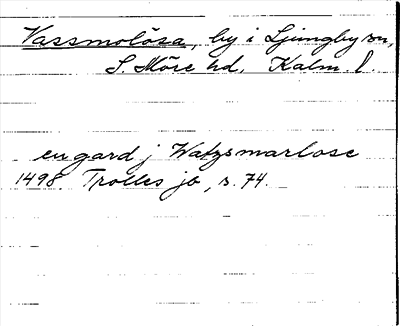 Vassmolösa, by i Ljungby sn,
S. Möre hd. Kalm. l.
en gard j Watzsmarlose
1498 Trolles jb, s. 74.